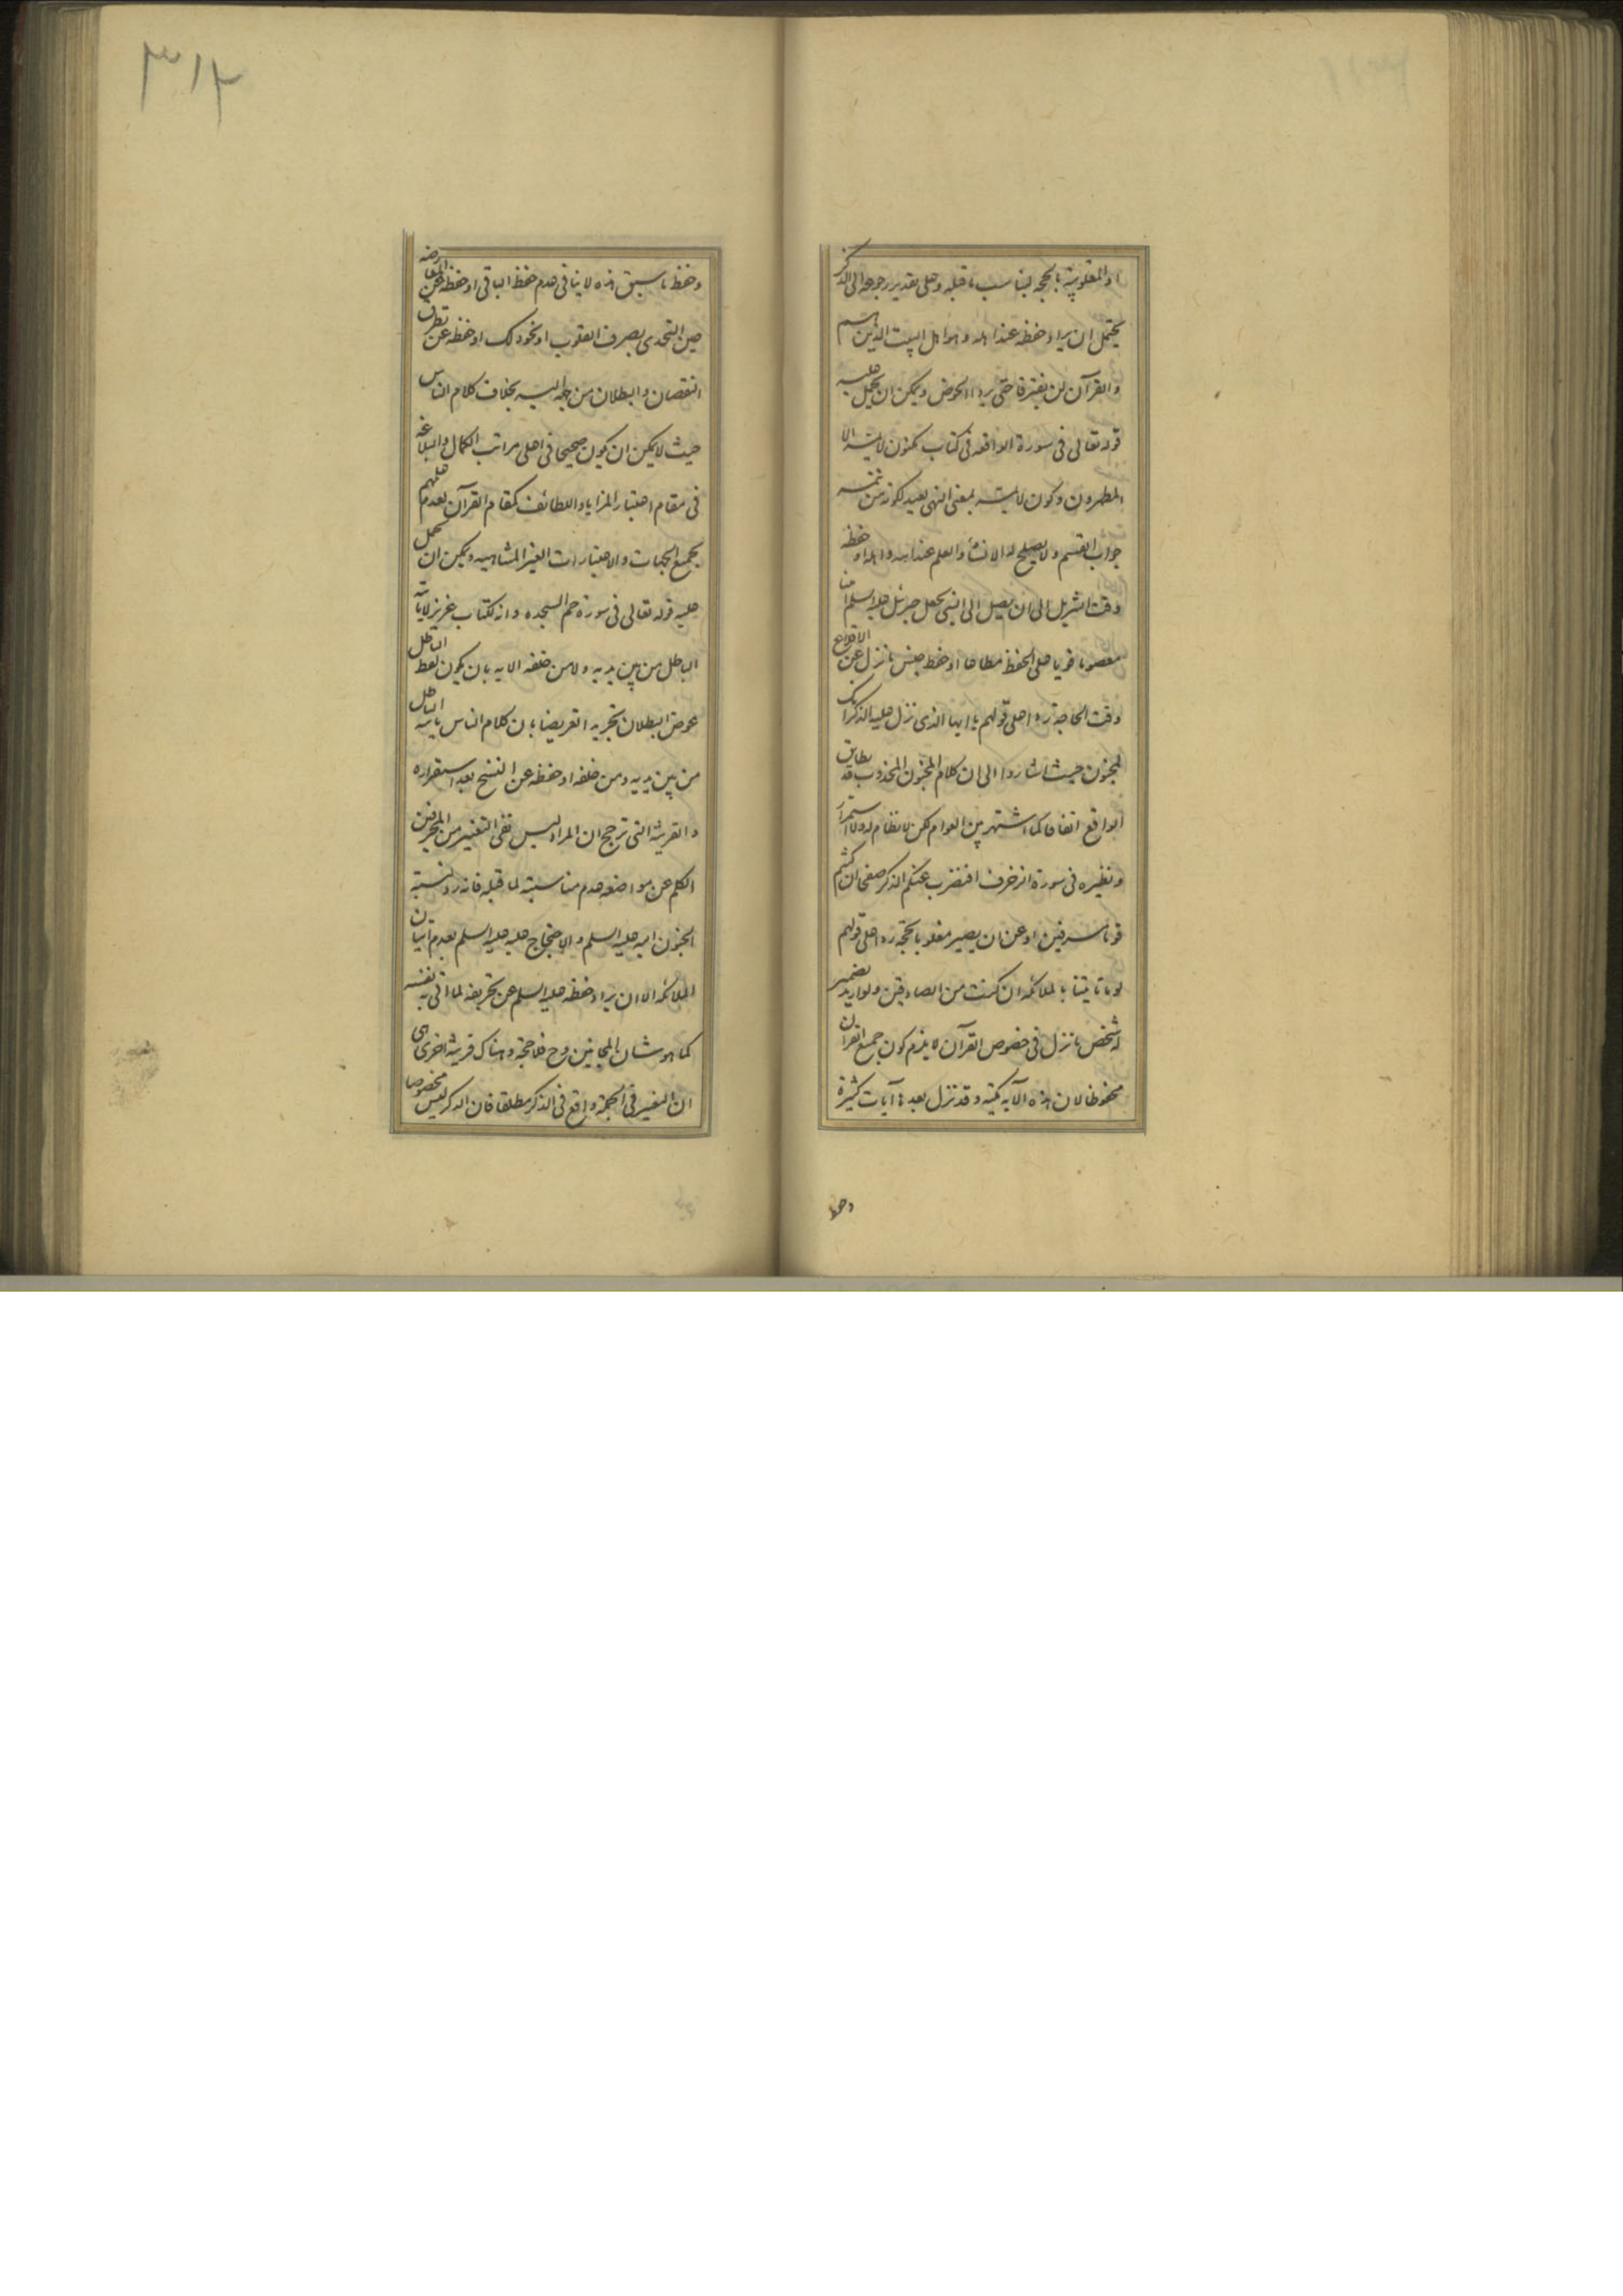 او المغلوبية بالحجه ليناسب ما قبله وعلى تقدير رجوعه الى الذكر
يحتمل ان يراد حفظه عند اهله وهو اهل البيت الذين هم
والقرآن لن يفترقا حتى يردا الحوض ويمكن ان يحمل عليه
قوله تعالى فى سورة الواقعه فى كتاب مكنون لا يمسه الا
المطهرون وكون لا يمسه بمعنى النهى بعيد لكونه من تتمه
جواب القسم ولا يصلح له الانشاء والعلم عند الله واهله او حفظه
وقت التنزيل الى ان يصل الى النبى بجعل جبرئيل عليه السلم امنا
معصوما قويا على الحفظ مطاعا او حفظ جنس ما نزل عن الاقلاع
وقت الحاجة ردا على قولهم يا ايها الذى نزل عليه الذكر انك
لمجنون حيث اشاروا الى ان كلام المجنون المجذوب قد يطابق
الواقع اتفاقا كما اشتهر بين العوام لكن لا نظام له ولا استمرار
ونظيره فى سورة الزخرف افنضرب عنكم الذكر صفحا ان كنتم
قوما مسرفين او عن ان يصير مغلوبا بحجة ردا على قولهم
لو ما تاتينا بالملائكه ان كنت من الصادقين ولو اريد بضمير
له شخص ما نزل فى خصوص القرآن لا يلزم كون جميع القرآن
محفوظا لان هذه الآيه مكيته وقد نزل بعدها آيات كثيرة
وحفظ
٣١٢
وحفظ ما سبق هذه لا ينافى عدم حفظ الباقى او حفظه عن المعارضه
حين التحدى بصرف القلوب او نحو ذلك او حفظه عن تطرق
النقصان والبطلان من جهة اليه بخلاف كلام الناس
حيث لا يمكن ان يكون صحيحا فى اعلى مراتب الكمال والبلاغه
فى مقام اعتبار المزايا واللطائف كمقام القرآن لعدم علمهم
بجميع الجهات والاعتبارات الغير المتناهيه ويمكن ان يحمل
عليه قوله تعالى فى سورة حم السجده وانه لكتاب عزيز لا ياتيه
الباطل من بين يديه ولا من خلفه الايه بان يكون لفظ الباطل
عوض البطلان تجريدا تعريضا بان كلام الناس ياتيه الباطل
من بين يديه ومن خلفه او حفظه عن النسخ بعد استقراره
والقرينة التى ترجح ان المراد ليس نفى التغيير من المحرفين
الكلم عن مواضعه عدم مناسبته لما قبله فانه رد نسبة
الجنون اليه عليه السلم والاحتجاج عليه عليه السلم بعدم اتيان
الملائكه الا ان يراد حفظه عليه السلم عن تحريفه لما اتى به بنفسه
كما هو شان المجانين وح فلا حجة وهناك قرينة اخرى هى
ان التغيير فى الجملة واقع فى الذكر مطلقا فان الذكر ليس مخصوصا